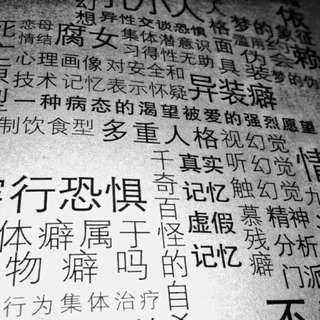 孔小人
依
幻想异性交谈恐惧
梦的象征
恋母情结
腐女
集体潜意识
面具
伪装
滥用
习得性无助
梦的伪
心理画像
对安全和
技术
记忆表示怀疑
异装癖
一种病态的渴望被爱的强烈愿望
制饮食型
多重人格
视幻觉
千奇百怪的自
真实记忆
虚假记忆
听幻觉
触幻觉
慕残癖
精神分析门派
行恐惧
体癖属于
物癖吗
行为
集体治疗